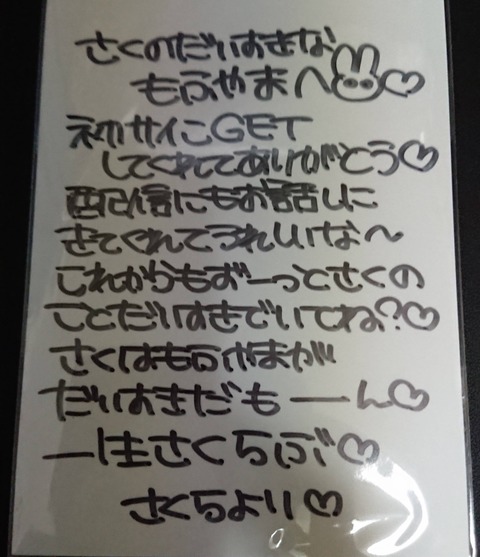 さくのだいすきな
もふやまへ♡
初サイこGET
してくれてありがとう♡
配信にもお話しに
きてくれてうれしいな〜
これからもずーっとさくの
ことだいすきでいてね?♡
さくはもふやまが
だいすきだもーん♡
一生さくらぶ♡
さくらより♡